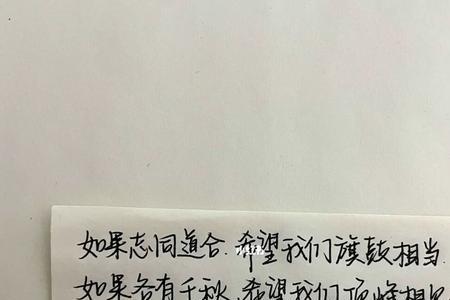 如果志同道合.希望我们旗鼓相当
如果各有千秋.希望我们顶峰相见